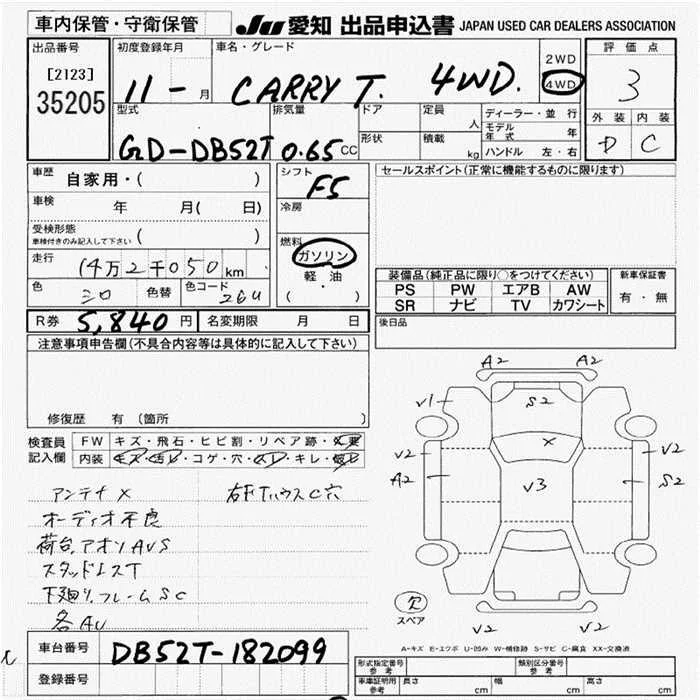 車内保管・守衛保管
JU 愛知 出品申込書 JAPAN USED CAR DEALERS ASSOCIATION
出品番号
[2123]
35205
初度登録年月
11 - 月
車名・グレード
CARRY T. 4WD.
2WD
4WD
評価点
3
外装 内装
D C
型式
GD-DB52T
排気量
0.65 CC
ドア
形状
定員
人
積載
kg
ディーラー・並行
モデル年式 年
ハンドル 左・右
車歴 自家用・( )
車検 年 月( 日)
受検形態
車検付きのみ記入して下さい ( )
走行 14万2千050km
色 シロ 色替 色コード 26U
シフト
F5
冷房
燃料
ガソリン
軽・油
( ・ )
セールスポイント(正常に機能するものに限ります)
装備品(純正品に限り○をつけてください)
PS PW エアB AW
SR ナビ TV カワシート
新車保証書
有・無
後日品
R券 5,840 円 名変期限 月 日
注意事項申告欄(不具合内容等は具体的に記入して下さい)
修復歴 有 (箇所
検査員記入欄
FW キズ・飛石・ヒビ割・リペア跡・✗要
内装 キズ・汚レ・コゲ・穴・スレ・キレ・破レ
アンテナ✗
オーディオ不良
荷台.アオリAUS
スタッドレスT
下廻り.フレームSC
各AU
右Fハウス C穴
A2 A2
S2
V1
✗
V2 V2
A2 S2
V3
V2 V2
欠
スペア
A-キズ E-エクボ U-凹み W-補修跡 S-サビ C-腐食 XX-交換済
車台番号 DB52T-182099
登録番号
形式指定番号 参考
類別区分番号 参考
車庫証明用 参考
長さ cm 幅 cm 高さ cm